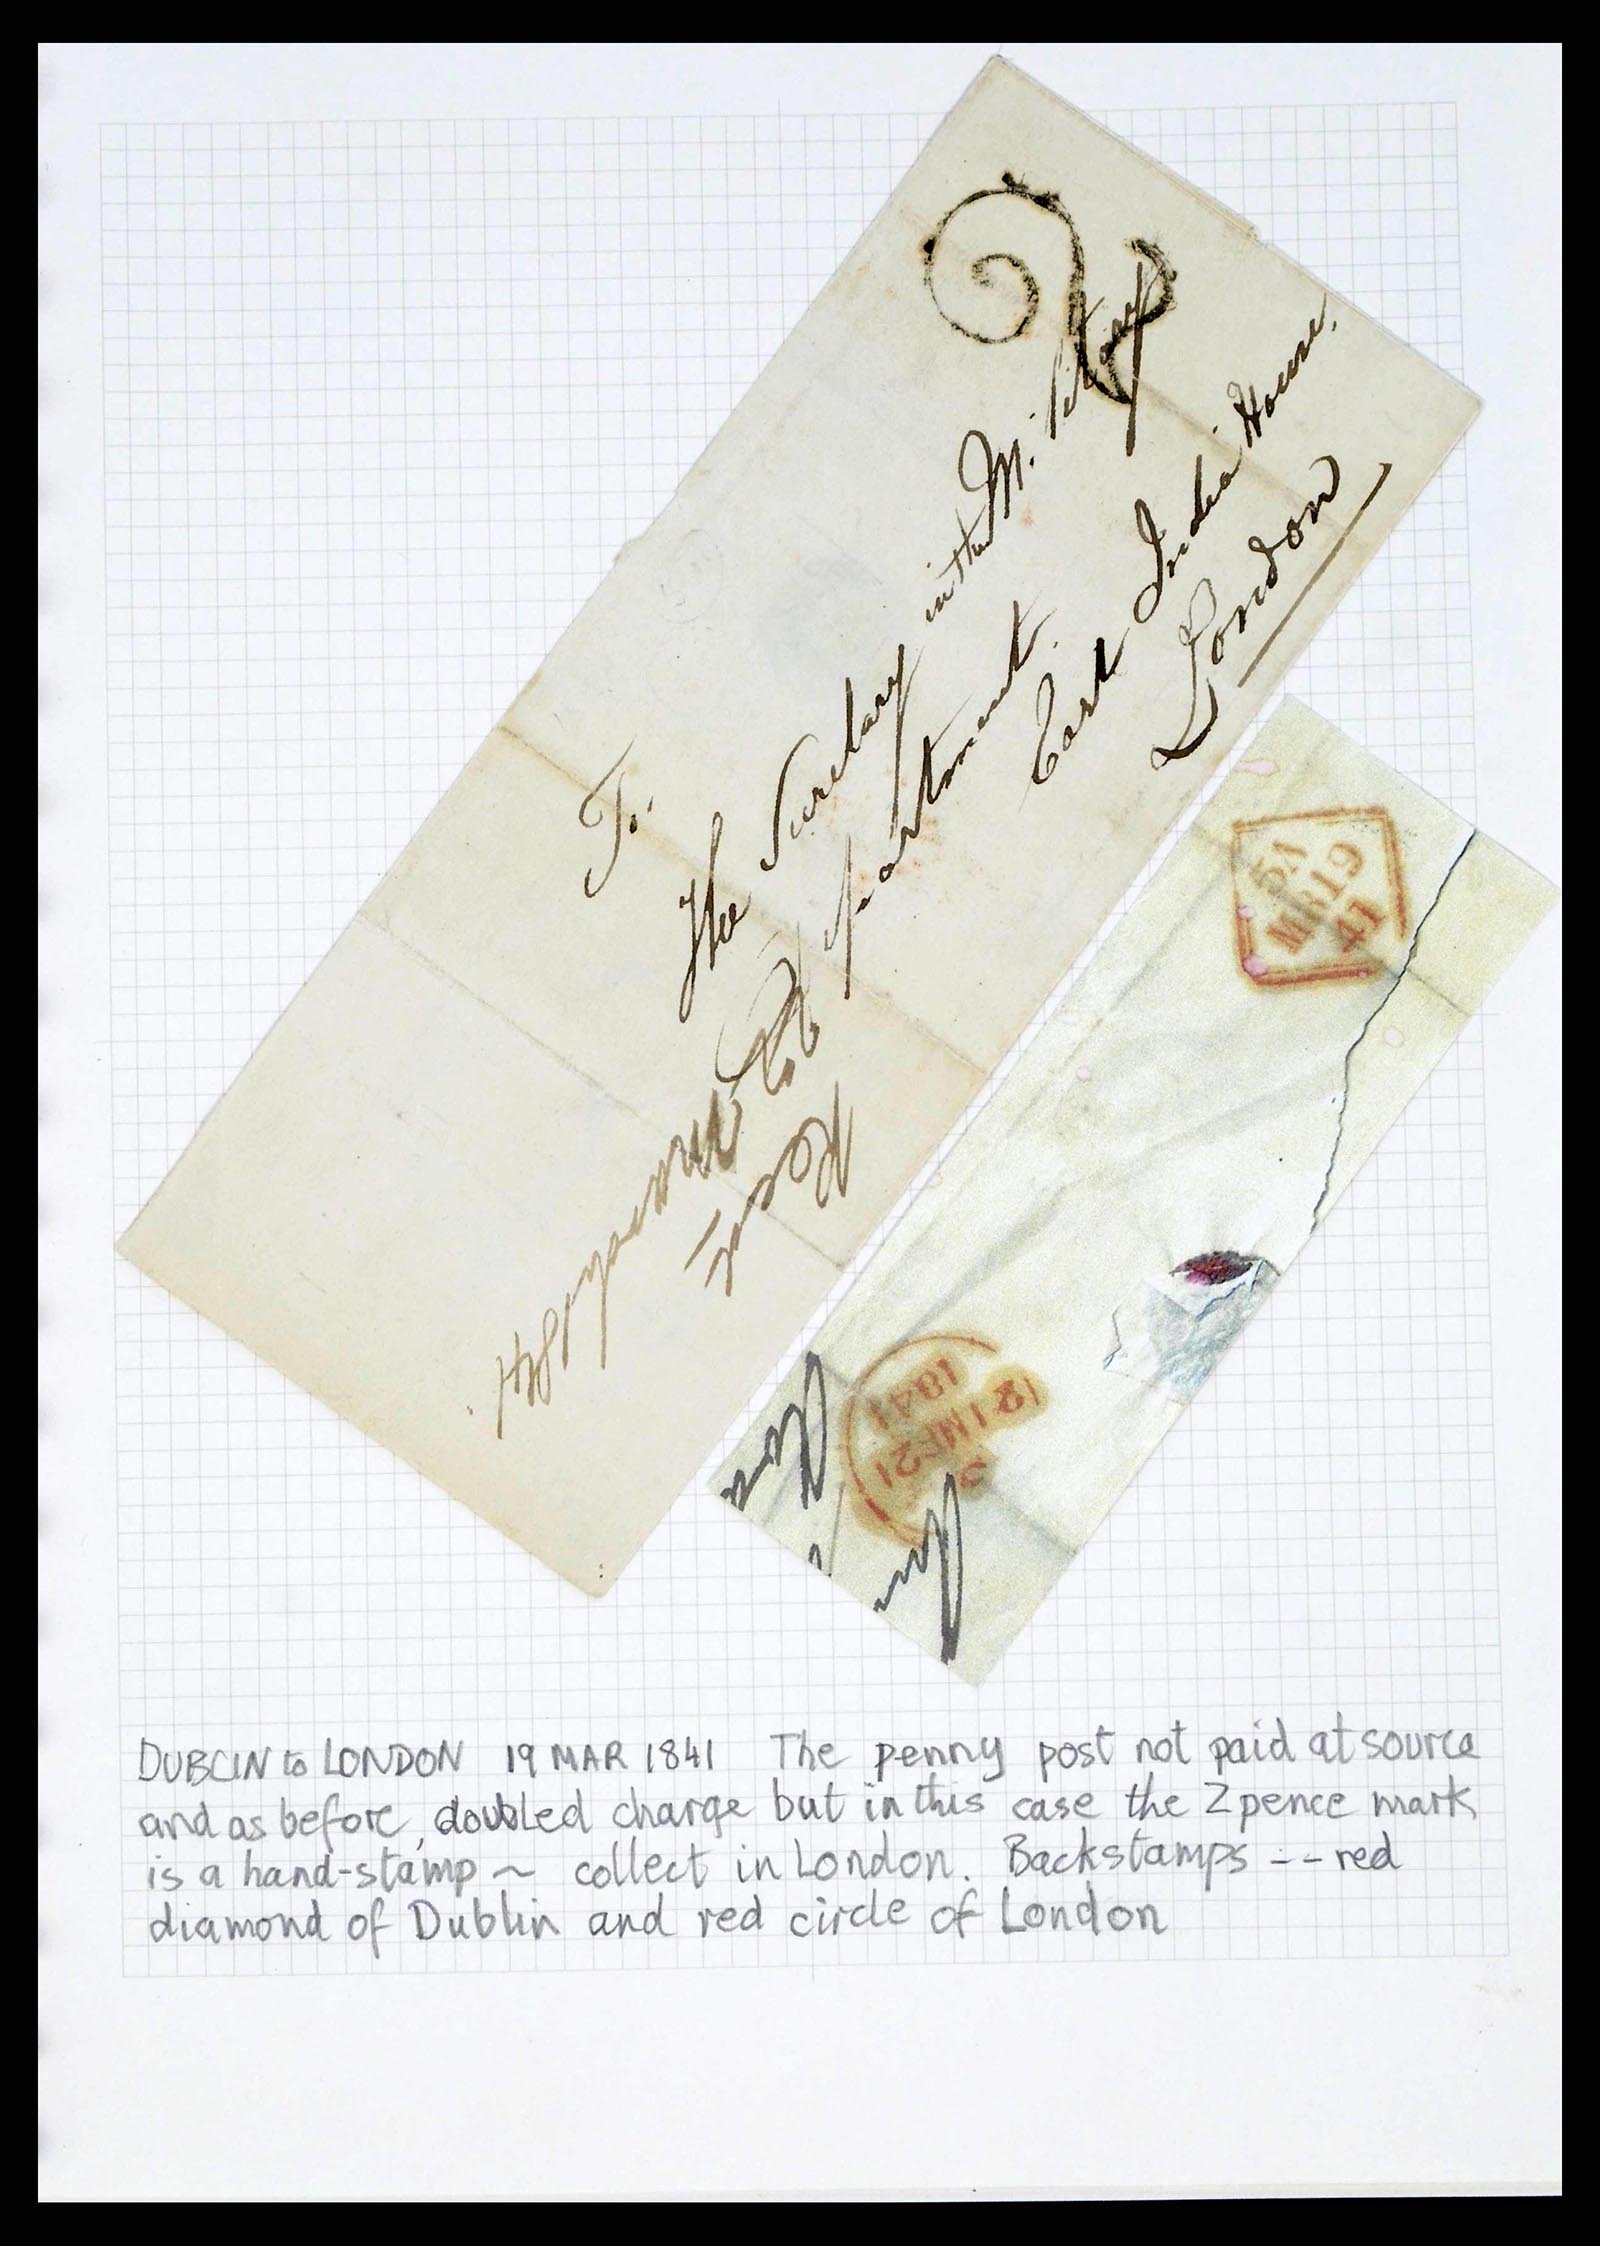 2
To.
The Secretary in the Military
Department.
East India House,
London
5A
MR19
41
21MR21
1841
DUBLIN to LONDON 19 MAR 1841 The penny post not paid at source
and as before, doubled charge but in this case the 2 pence mark
is a hand-stamp ~ collect in London. Backstamps -- red
diamond of Dublin and red circle of London